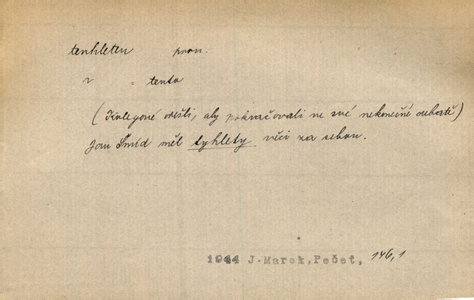 tenhleten pron.
2 = tento
(Kolegové odešli, aby pokračovali ve své nekonečné debatě)
Jan Šmíd měl tyhlety věci za sebou.
1944 J. Marek, Pečeť, 146,1